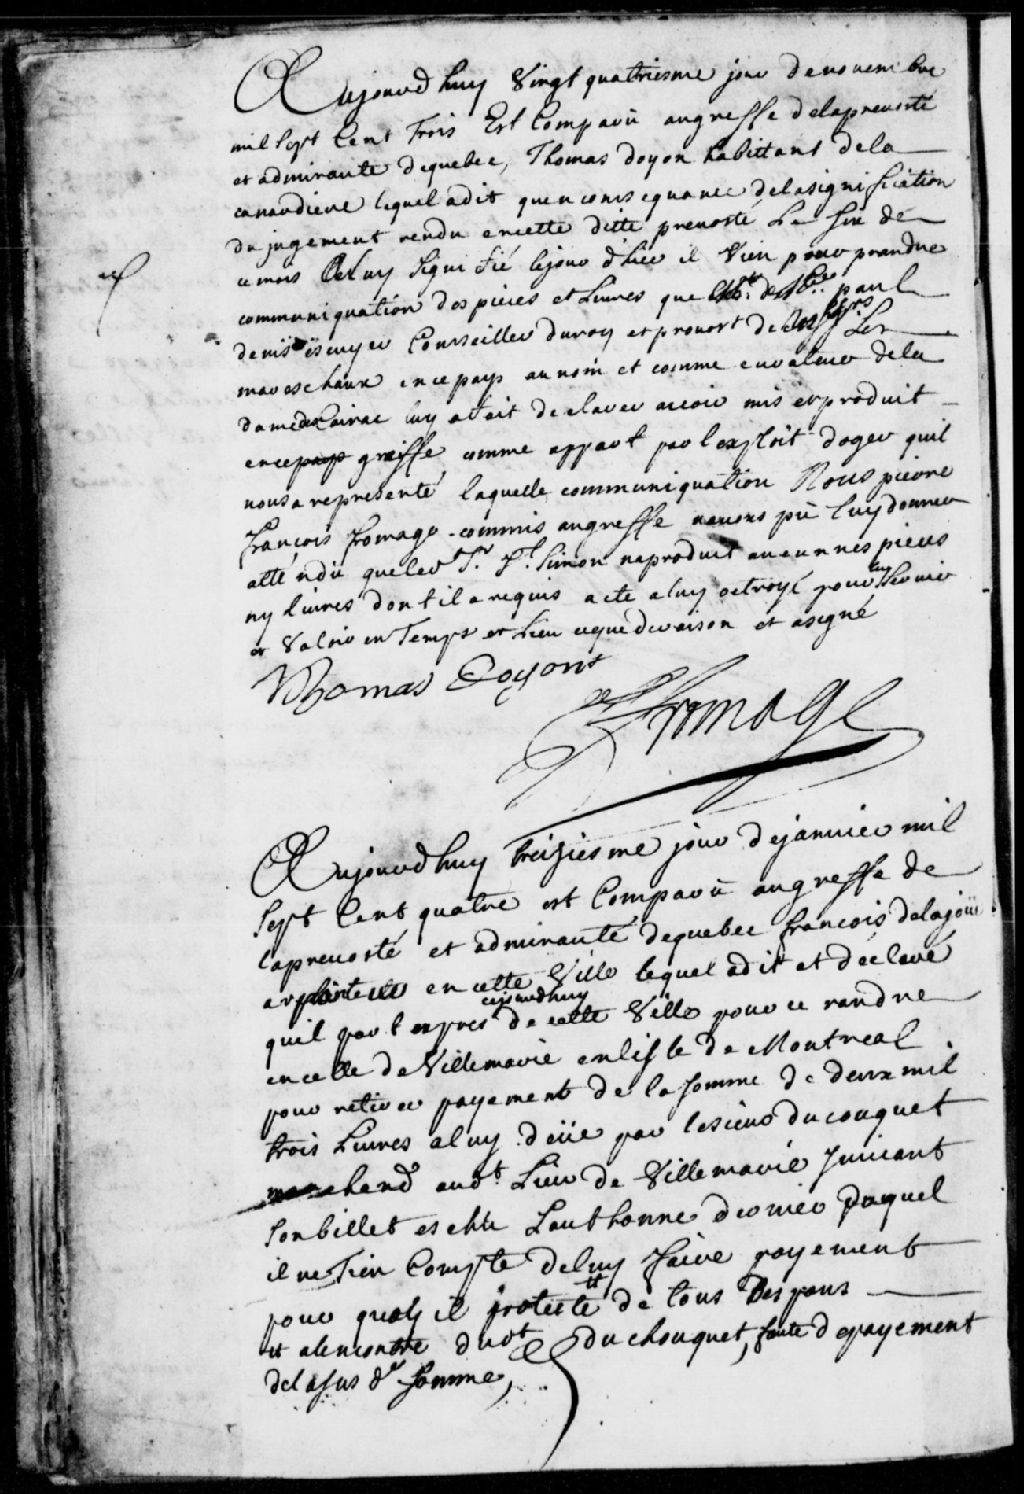 Aujourdhuy Vingt quatriesme jour denovembre
mil sept Cent Trois Est Comparü augreffe delaprevosté
et admirauté dequebec, Thomas doyon habittant dela
canardiere lequel adit quenconsequance delasignification
du jugement rendu encette ditte prevosté Le six de
cemois luy signifié lejour d'hier il Vien pour prandre
communiquation des pieces et Livres que paul
denis escuyer Conseiller duroy et prevost de Les
mareschaux encepays aunom et comme cureateur dela
dame deClairac luy a fait declarer avoir mis et produit
ence greffe comme appart par lexploit doger quil
nousa representé laquelle communiquation Nous pierre
françois fromage commis augreffe navons pü luy donner
attendu queled Sr. St. Simon naproduit aucunnes pieces
ny livres dont il a requis acte aluy octroyé pour luy servir
et Valoir en Temps et Lieu ceque deraison et asigné
Thomas Doyon
fromage
Aujourdhuy treisiesme jour dejanvier mil
sept Cent quatre est Comparü augreffe de
laprevosté et admirauté dequebec françois delajoüe
architecte encette Ville lequel adit et déclaré
quil part expres aujourdhuy de cette Ville pour ce randre
encelle deVillemarie enlisle de Montreal
pour retirer payement de la somme de deux mil
trois Livres aluy deüe par lesieur duchouquet
marchand audt. Lieu de Villemarie suivant
sonbillet eschu Lauthonne dernier Duquel
il ne Tien Compte deluy faire payement
pour quoy il proteste de tous Despans
et alencontre dudt duchouquet, faute depayement
delasus de. somme,